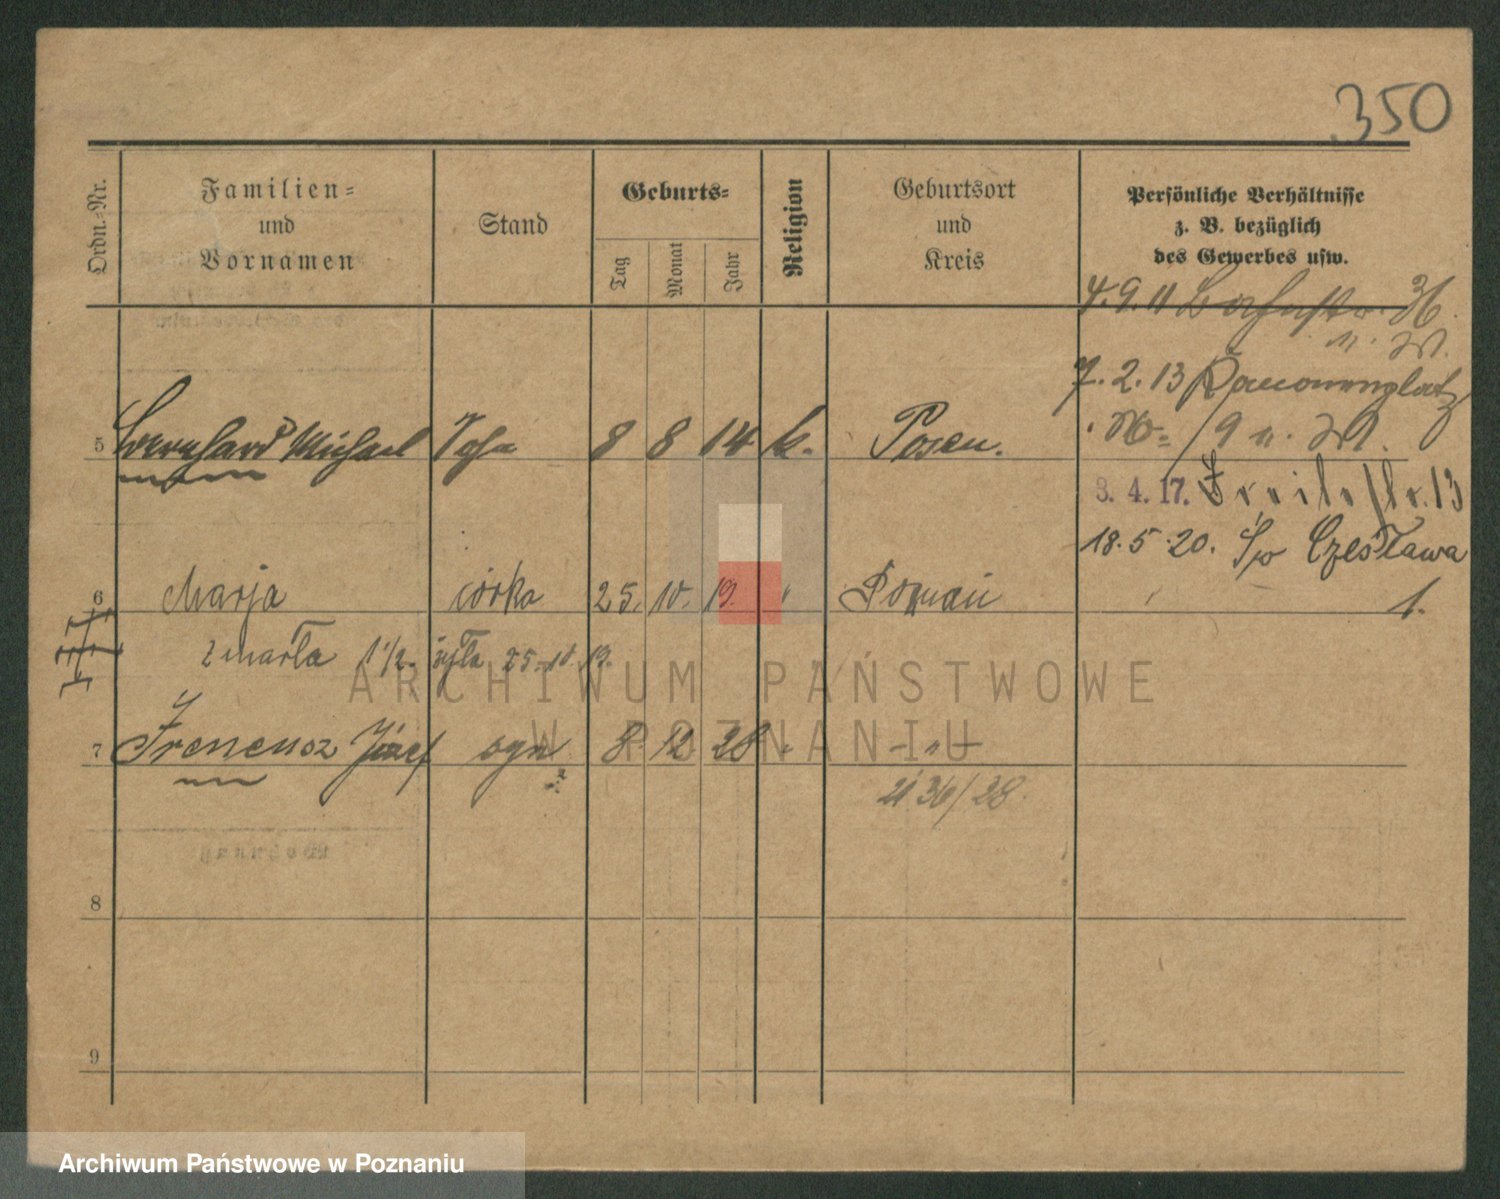 350
Ordn.-Nr.
Familien-
und
Vornamen
Stand
Geburts-
Tag
Monat
Jahr
Religion
Geburtsort
und
Kreis
Persönliche Verhältnisse
z. B. bezüglich
des Gewerbes usw.
4.9.11 36
7.2.13
9
5 Bernhard Michael Sohn 8 8 14 k. Posen.
3. 4. 17. 13
18.5.20. Czesława
1.
6 Marja córka 25. 10. 19. " Poznań
zmarła 1 1/2 25.10.19.
7 Ireneusz Józef syn 8 12 28 " - " -
36/28
8
9
ARCHIWUM PAŃSTWOWE
W POZNANIU
Archiwum Państwowe w Poznaniu